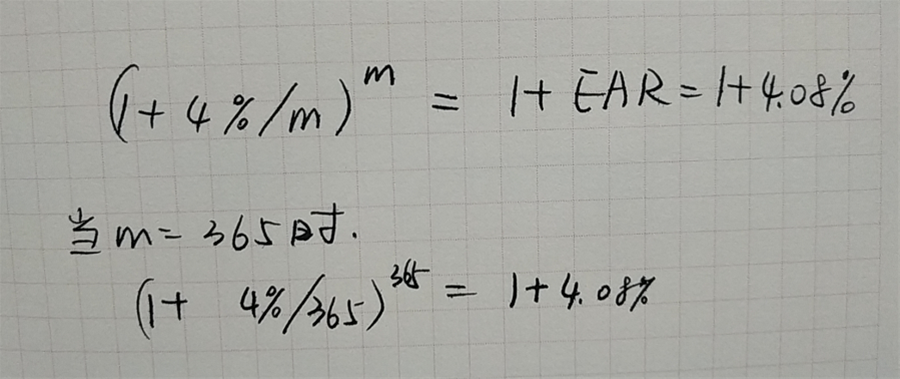 (1+4%/m)^m = 1+EAR=1+4.08%
当m=365时.
(1+ 4%/365)^365 = 1+4.08%